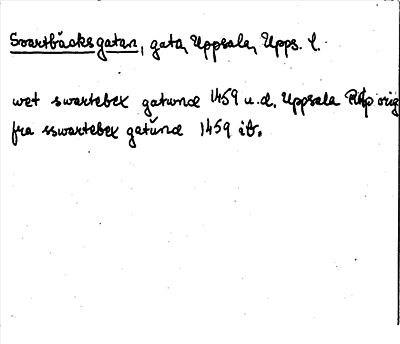 Svartbäcksgatan, gata, Uppsala, Upps. l.
wet swartebex gatunæ 1459 u.d. Uppsala RAp orig
fra sswartebex gatŭnæ 1459 ib.